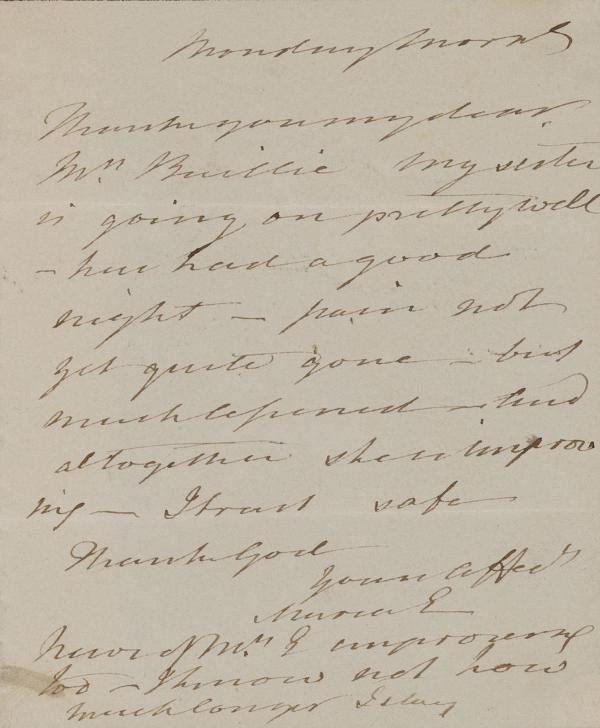 Monday Morng
Thank you my dear
Mrs Baillie My sister
is going on pretty well
– has had a good
night – pain not
yet quite gone – but
much lessened – and
altogether she is improv
ing – I trust safe
Thank God
Yours affecly
Maria E
News of Mrs E improving
too – I know not how
much longer I stay